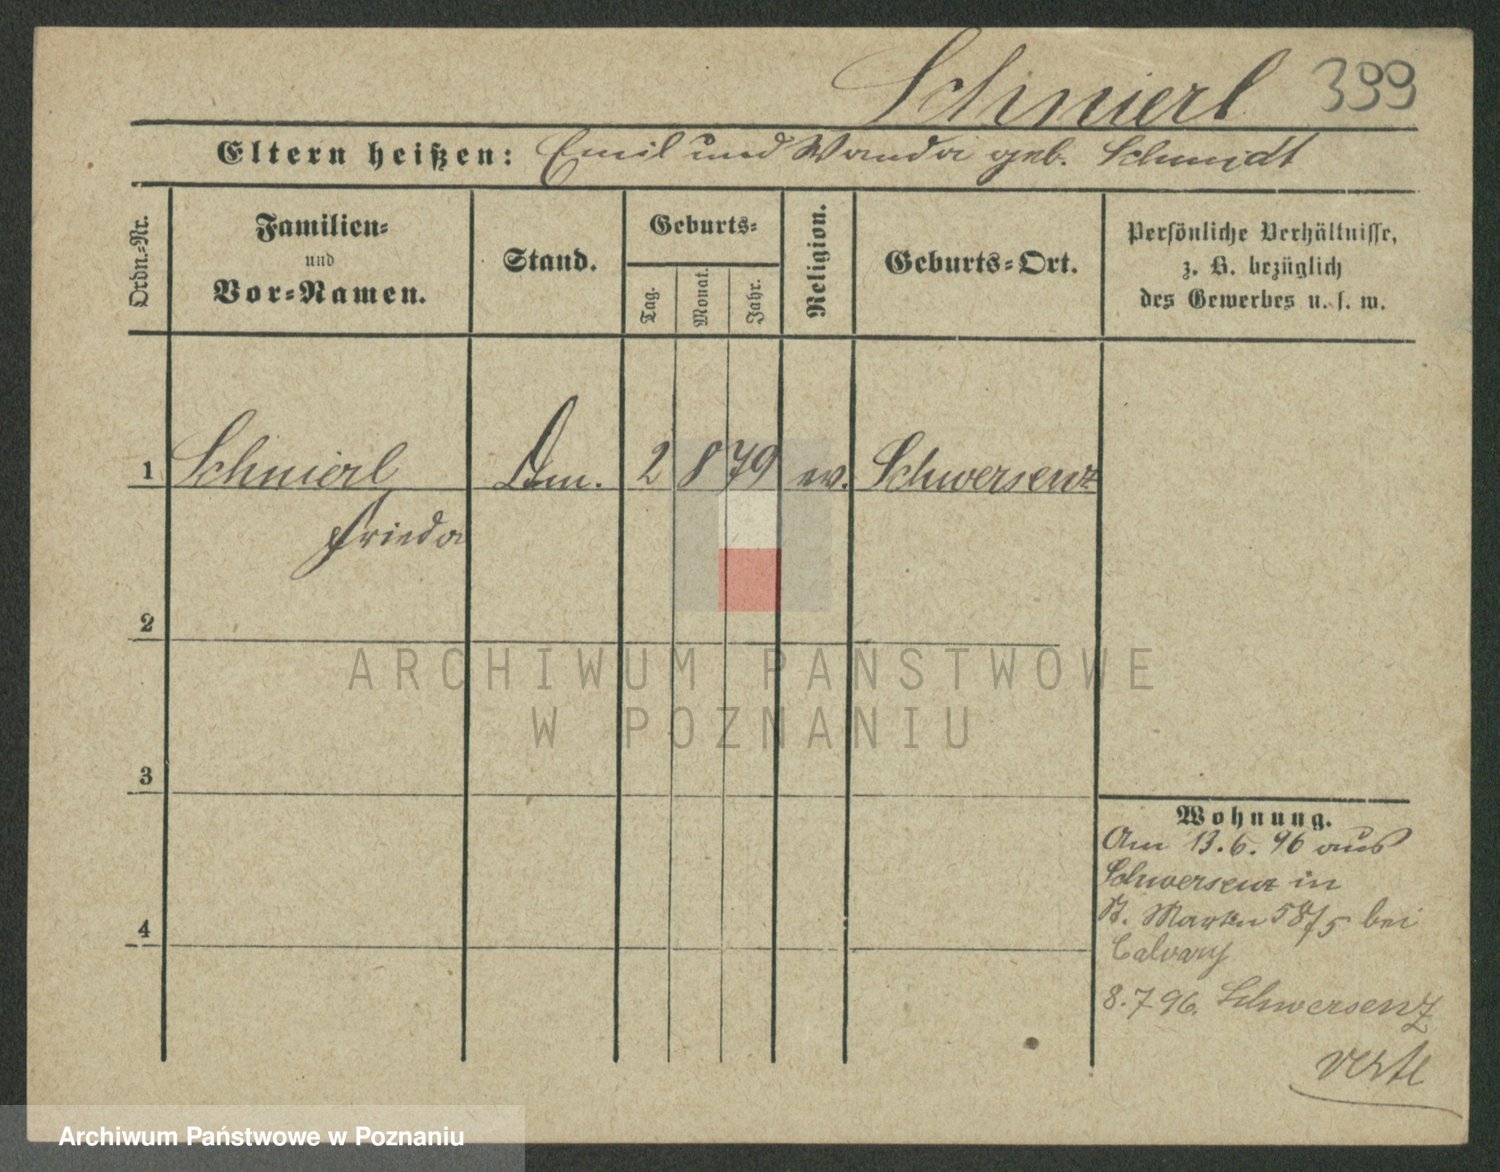 Schmierl 399
Eltern heißen: Emil und Wanda geb. Schmidt
Ordn.-Nr.
Familien-
und
Vor-Namen.
Stand.
Geburts-
Tag.
Monat.
Jahr.
Religion.
Geburts-Ort.
Persönliche Verhältnisse,
z. B. bezüglich
des Gewerbes u. s. w.
1 Schmierl 2 8 79 ev. Schwersenz
Frieda
2
3
4
ARCHIWUM PAŃSTWOWE
W POZNANIU
Wohnung.
Am 13.6.96 aus
Schwersenz in
St. Martin 58/5 bei
Calvary
8.7.96. Schwersenz
Archiwum Państwowe w Poznaniu